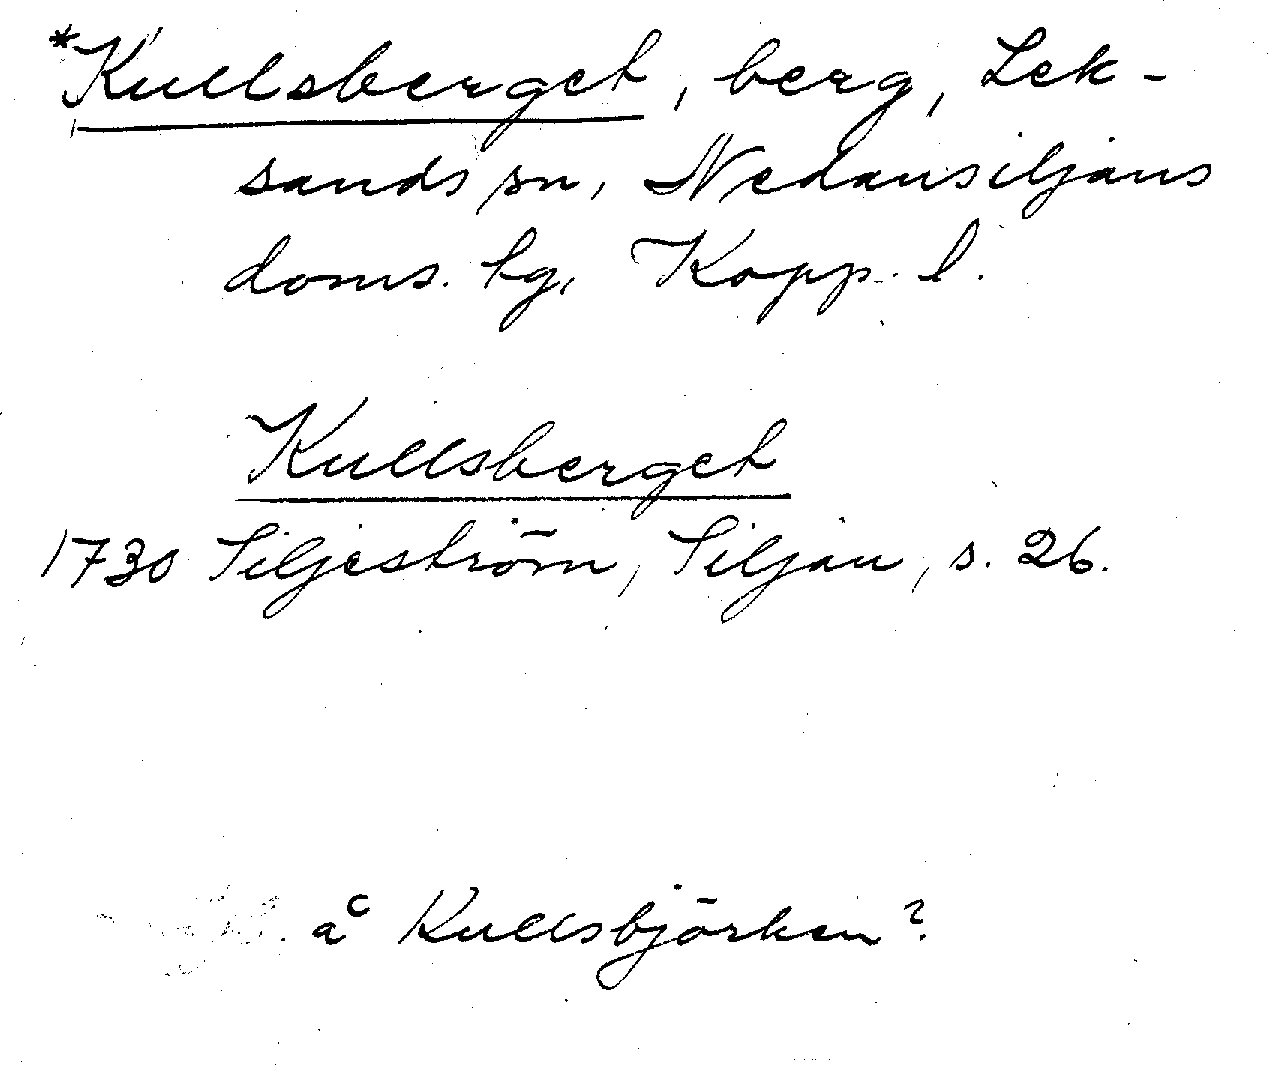 *Kullsberget, berg, Lek-
sands sn, Nedansiljans
doms. tg, Kopp. l.
Kullsberget
1730 Siljeström, Siljan, s. 26.
å Kullsbjörken?